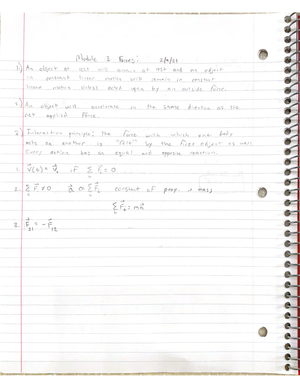 Module 3 Forces: 2/9/21
1) An object at rest will remain at rest and an object
in constant linear motion will remain in constant
linear motion unless acted upon by an outside force.
2) An object will accelerate in the same direction as the
net applied force.
3) Interaction principle: The force with which one body
acts on another is "felt" by the first object as well
Every action has an equal and opposite reaction.
1. v⃗(t) = v⃗₀ if Σ F⃗ᵢ = 0
2. Σ F⃗ᵢ ≠ 0 a⃗ ∝ Σ F⃗ᵢ constant of prop. is mass
Σ F⃗ᵢ = ma⃗
3. F⃗₂₁ = -F⃗₁₂